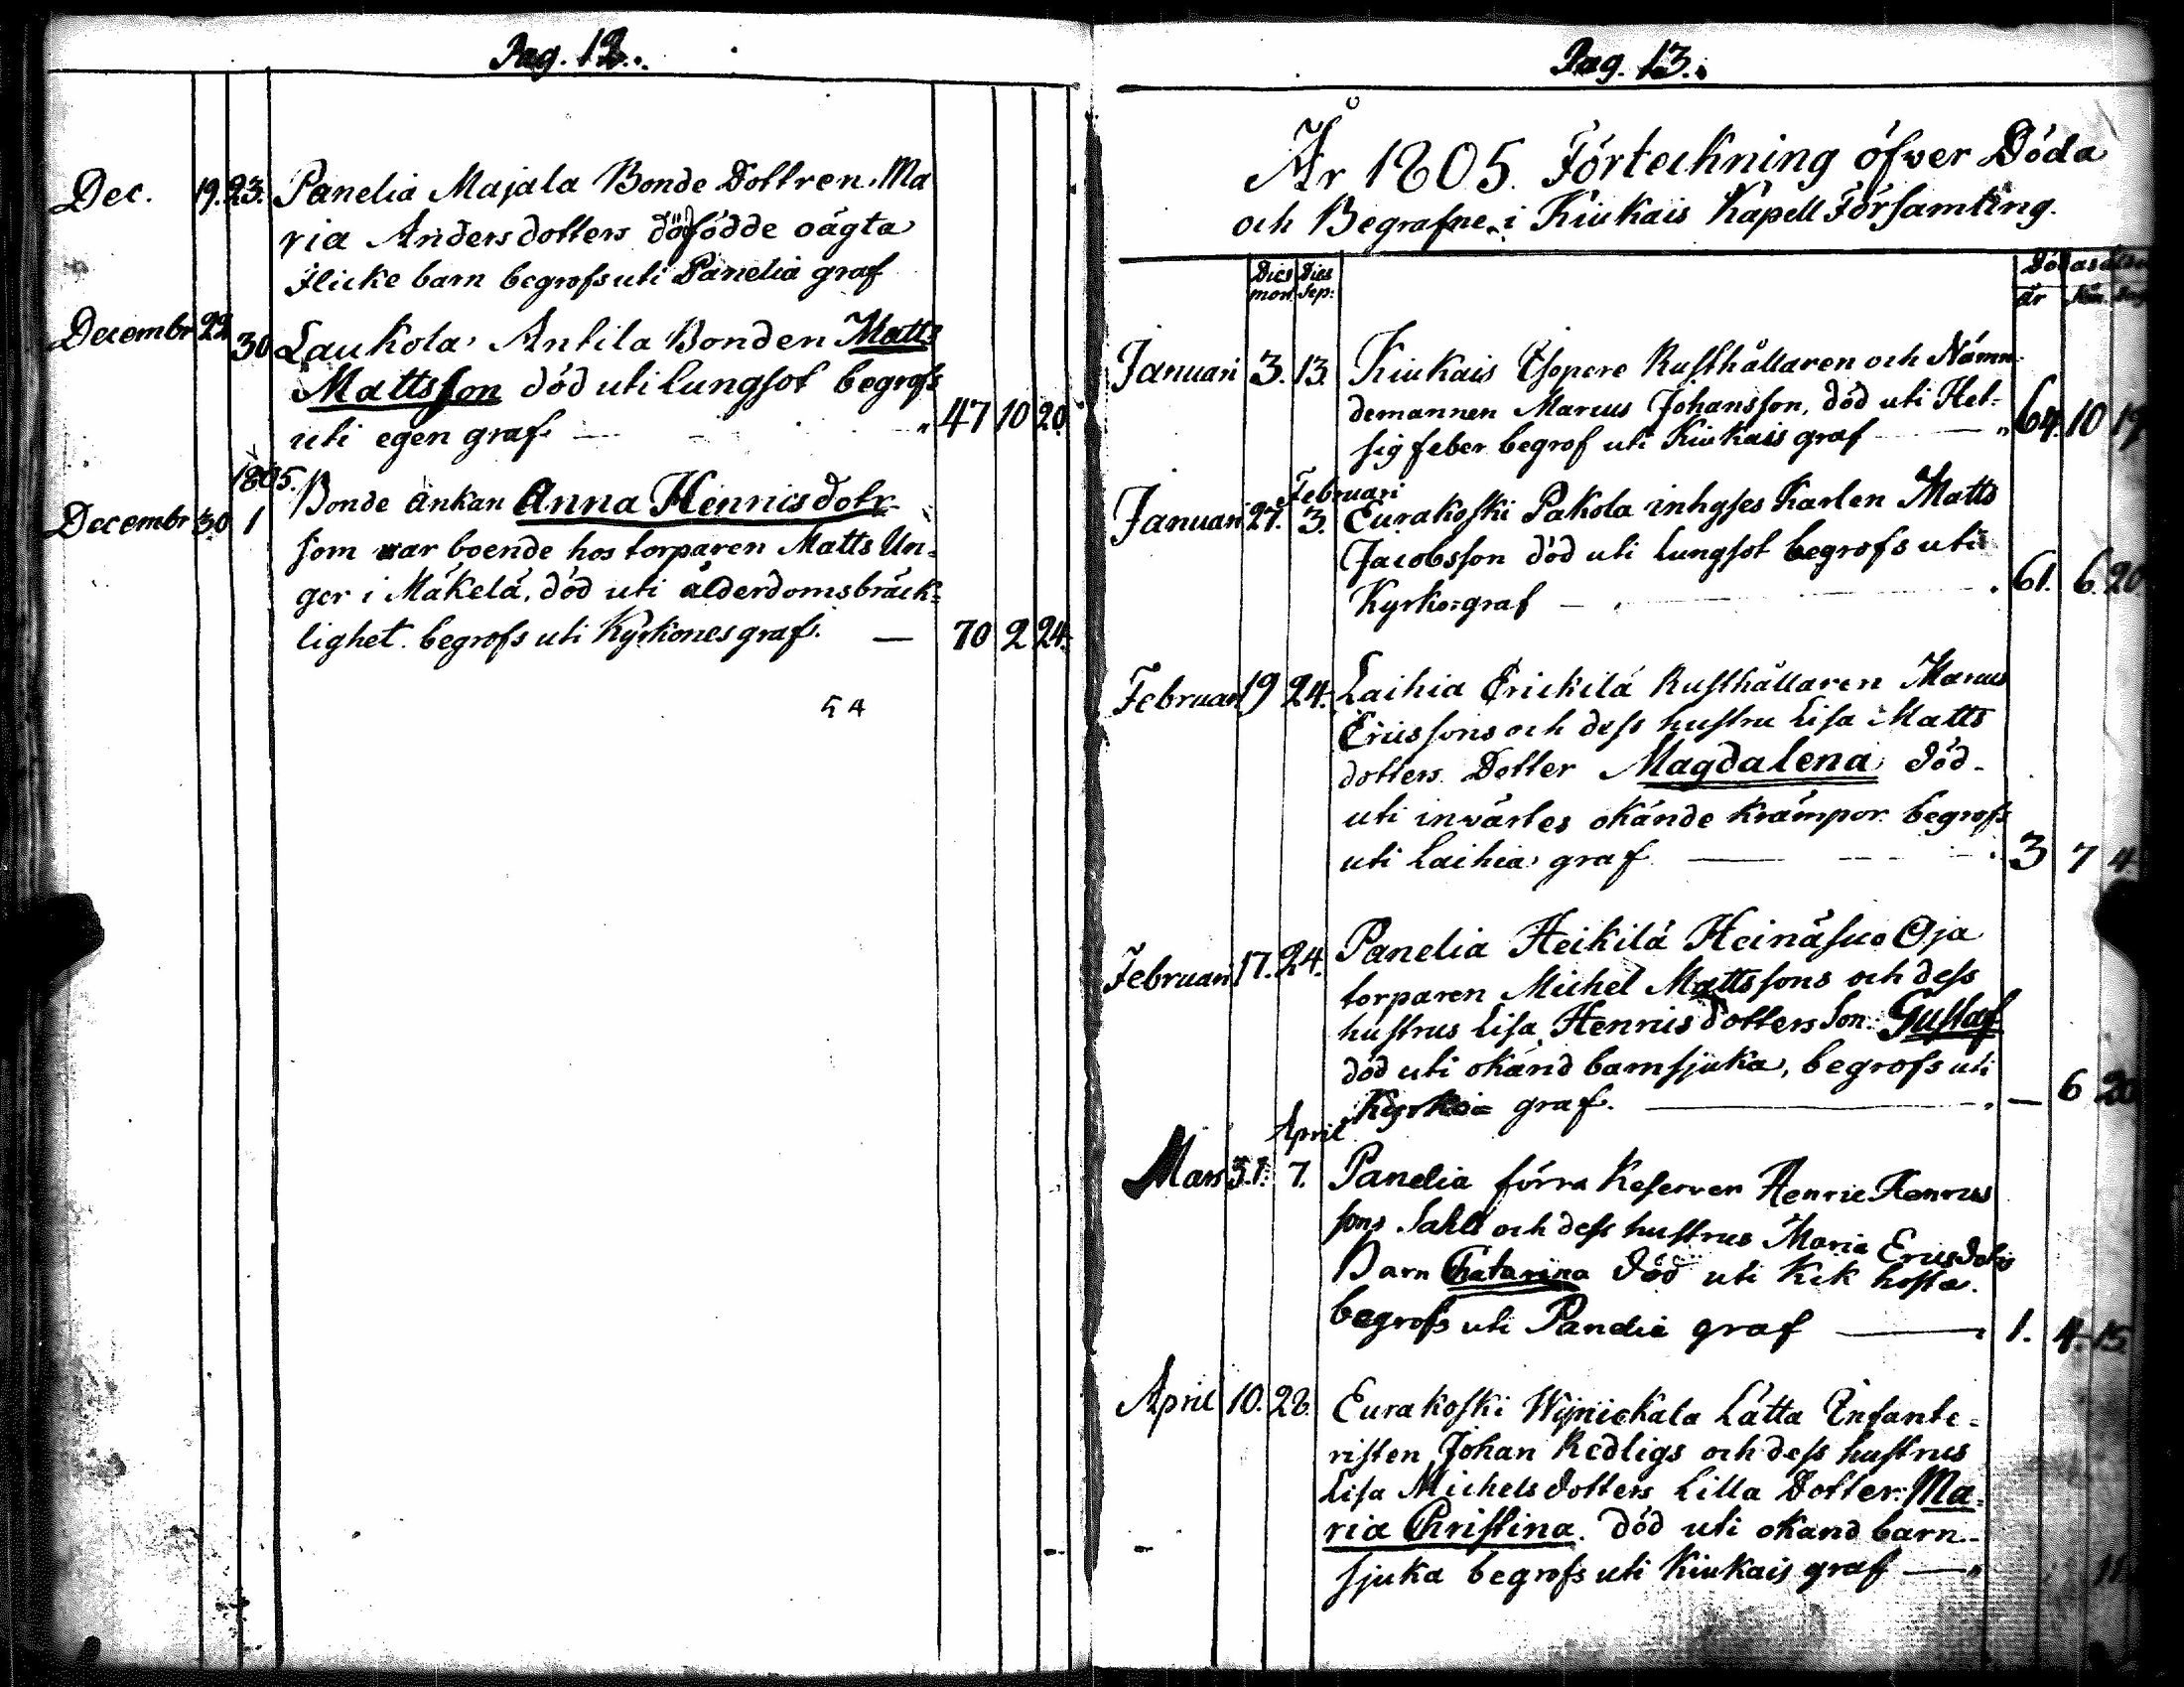 Pag. 12.
Dec. 19. 23. Panelia Majala Bonde Dottren Ma
ria Andersdotters dödfödde oägta
flicke barn begrofs uti Panelia graf
Decembr 22 30 Laukola Antila Bonden Matts
Mattsson död uti Lungsot begrofs
uti egen graf — 47 10 20
1805.
Decembr 30 1 Bonde änkan Anna Henricsdotr
som var boende hos torparen Matts Un-
ger i Mäkelä, död uti ålderdomsbräck-
lighet. begrofs uti Kyrkones graf. — 70 2 24.
54
Pag. 13.
År 1805. Förteckning öfwer Döda
och Begrafne i Kiukais Kapell Församling.
Dies Dies Dödas
mort. Sep: år
Januari 3. 13. Kiukais Esopere Rusthållaren och Nämn-
demannen Marcus Johansson, död uti Het-
sig feber begrof uti Kiukais graf — 64. 10 19
Februari
Januari 27. 3. Eurakoski Pakola inhyses Karlen Matts
Jacobsson död uti Lungsot begrofs uti
Kyrko graf — 61. 6 20
Februari 19 24. Laihia Erickilä Rusthållaren Marcus
Ericssons och dess hustru Lisa Matts
dotters Dotter Magdalena död
uti invärtes okände krämpor begrofs
uti Laihia graf — 3 7 4
Februari 17. 24. Panelia Heikilä Heinäsuo Oja
torparen Michel Mattssons och dess
hustrus Lisa Henricsdotters Son: Gustaf
död uti okänd barnsjuka, begrofs uti
Kyrko graf. — — 6 20
April
Mars 31. 7. Panelia förra Reserven Henric Henrics
sons Sahls och dess hustrus Maria Ericsdotrs
Barn Catarina död uti Kik hosta.
begrofs uti Panelia graf — 1. 4. 15.
April 10. 28. Eurakoski Wijnickala Lätta Infante-
risten Johan Redligs och dess hustrus
Lisa Michelsdotters Lilla Dotter: Ma-
ria Christina. död uti okand barn-
sjuka begrofs uti Kiukais graf — 11